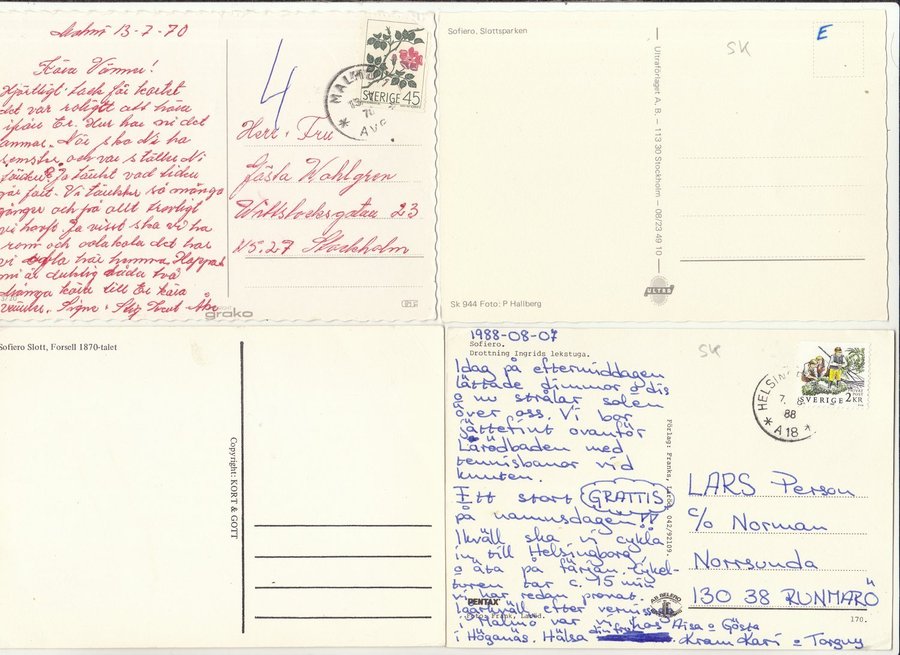 Malmö 13-7-70
Kära Vänner!
Hjärtligt tack för kortet
det var roligt att höra
ifrån Er. Hur har ni det
annars. När ska Ni ha
semster, och var ställer Ni
färden? Ja tänkt vad tiden
går fort. Vi tänker så många
gånger och på allt trevligt
vi haft. Ja visst ska vi ha
rom och cola kola det har
vi här hemma. Hoppas
ni är duktig båda två
många kära till Er kära
vänner. Signe
4
MALMÖ
13
70
AVG
SVERIGE 45
Herr o Fru
Gösta Wahlgren
Wittstocksgatan 23
115.27 Stockholm
grako
Sofiero. Slottsparken
SK
E
Ultraförlaget A. B. — 113 30 Stockholm — 08/23 49 10
ULTRA
Sk 944 Foto: P Hallberg
Sofiero Slott, Forsell 1870-talet
Copyright: KORT & GOTT
1988-08-07
Sofiero.
Drottning Ingrids lekstuga.
SK
Idag på eftermiddagen
lättade dimmor o dis
o nu strålar solen
över oss. Vi bor
jättefint ovanför
Lärödbaden med
tennisbanor vid
knuten.
Ett stort GRATTIS
på namnsdagen!!
Ikväll ska vi cykla
in till Helsingborg
o äta på färjan. Cykel-
turen tar c. 15 min
vi har redan provat.
Igårkväll efter vernissage
i Malmö var vi hos Aisa o Gösta
i Höganäs. Hälsa din fru
Kram Kari o Torguy
PENTAX
Foto: Frank, Laröd.
Förlag: Franks, Laröd, 042/92109.
AB GELERO
HELSINGBORG
7. 8.
88
A 18
SVERIGE 2 KR
LARS Person
c/o Norman
Norrsunda
130 38 RUNMARÖ
170.